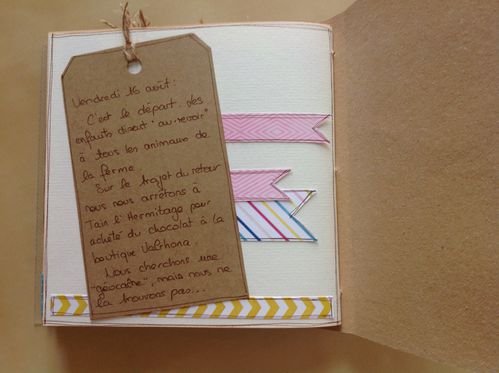 Vendredi 16 août:
C'est le départ. Les
enfants disent "au revoir"
à tous les animaux de
la ferme.
Sur le trajet du retour
nous nous arrêtons à
Tain l'Hermitage pour
acheté du chocolat à la
boutique Valrhona.
Nous cherchons une
"géocache", mais nous ne
la trouvons pas...